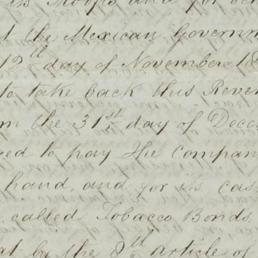 the Mexican Governm
12th day of November 18
to take back this Reve
the 31st day of Dece
to pay the Compan
hand and for its cas
called Tobacco Bonds
by the 9th article of